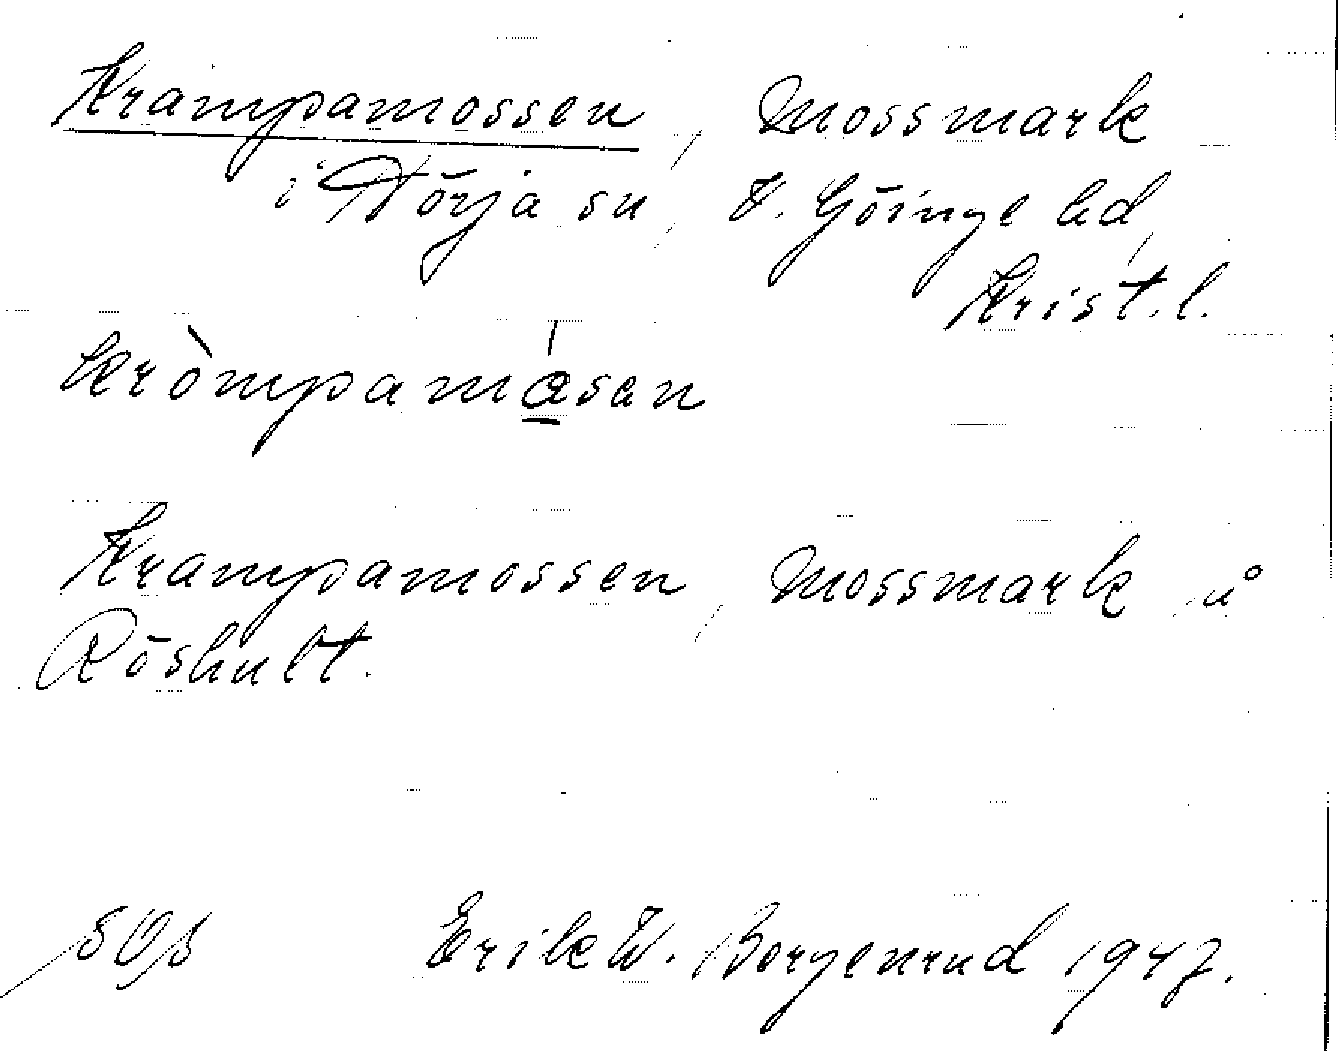 Krampamossen, Mossmark
i Nörja sn, V. Göinge hd,
Krist. l.
kròmpamåsen
Krampamossen, Mossmark å
Röshult.
Erik W. Borgenrud 1947.